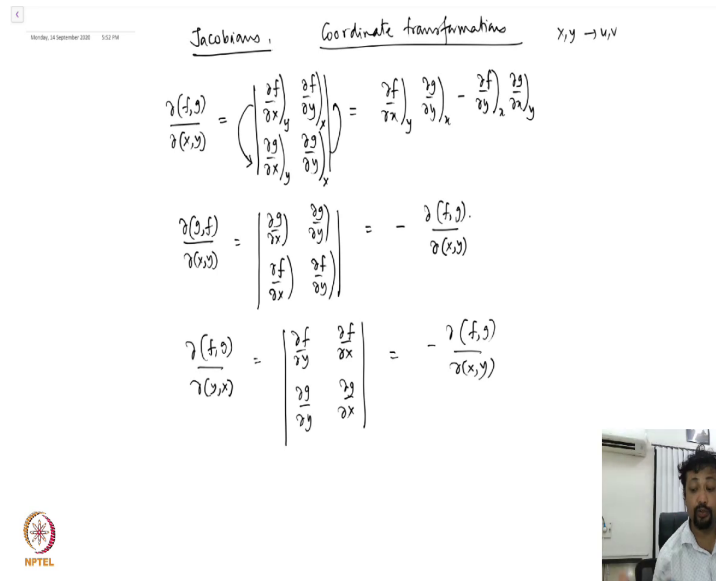 Monday, 14 September 2020 5:52 PM
Jacobians, Coordinate transformations x,y → u,v
∂(f,g)/∂(x,y) = | ∂f/∂x)_y ∂f/∂y)_x ; ∂g/∂x)_y ∂g/∂y)_x | = ∂f/∂x)_y ∂g/∂y)_x − ∂f/∂y)_x ∂g/∂x)_y
∂(g,f)/∂(x,y) = | ∂g/∂x) ∂g/∂y) ; ∂f/∂x) ∂f/∂y) | = − ∂(f,g)/∂(x,y).
∂(f,g)/∂(y,x) = | ∂f/∂y ∂f/∂x ; ∂g/∂y ∂g/∂x | = − ∂(f,g)/∂(x,y)
NPTEL